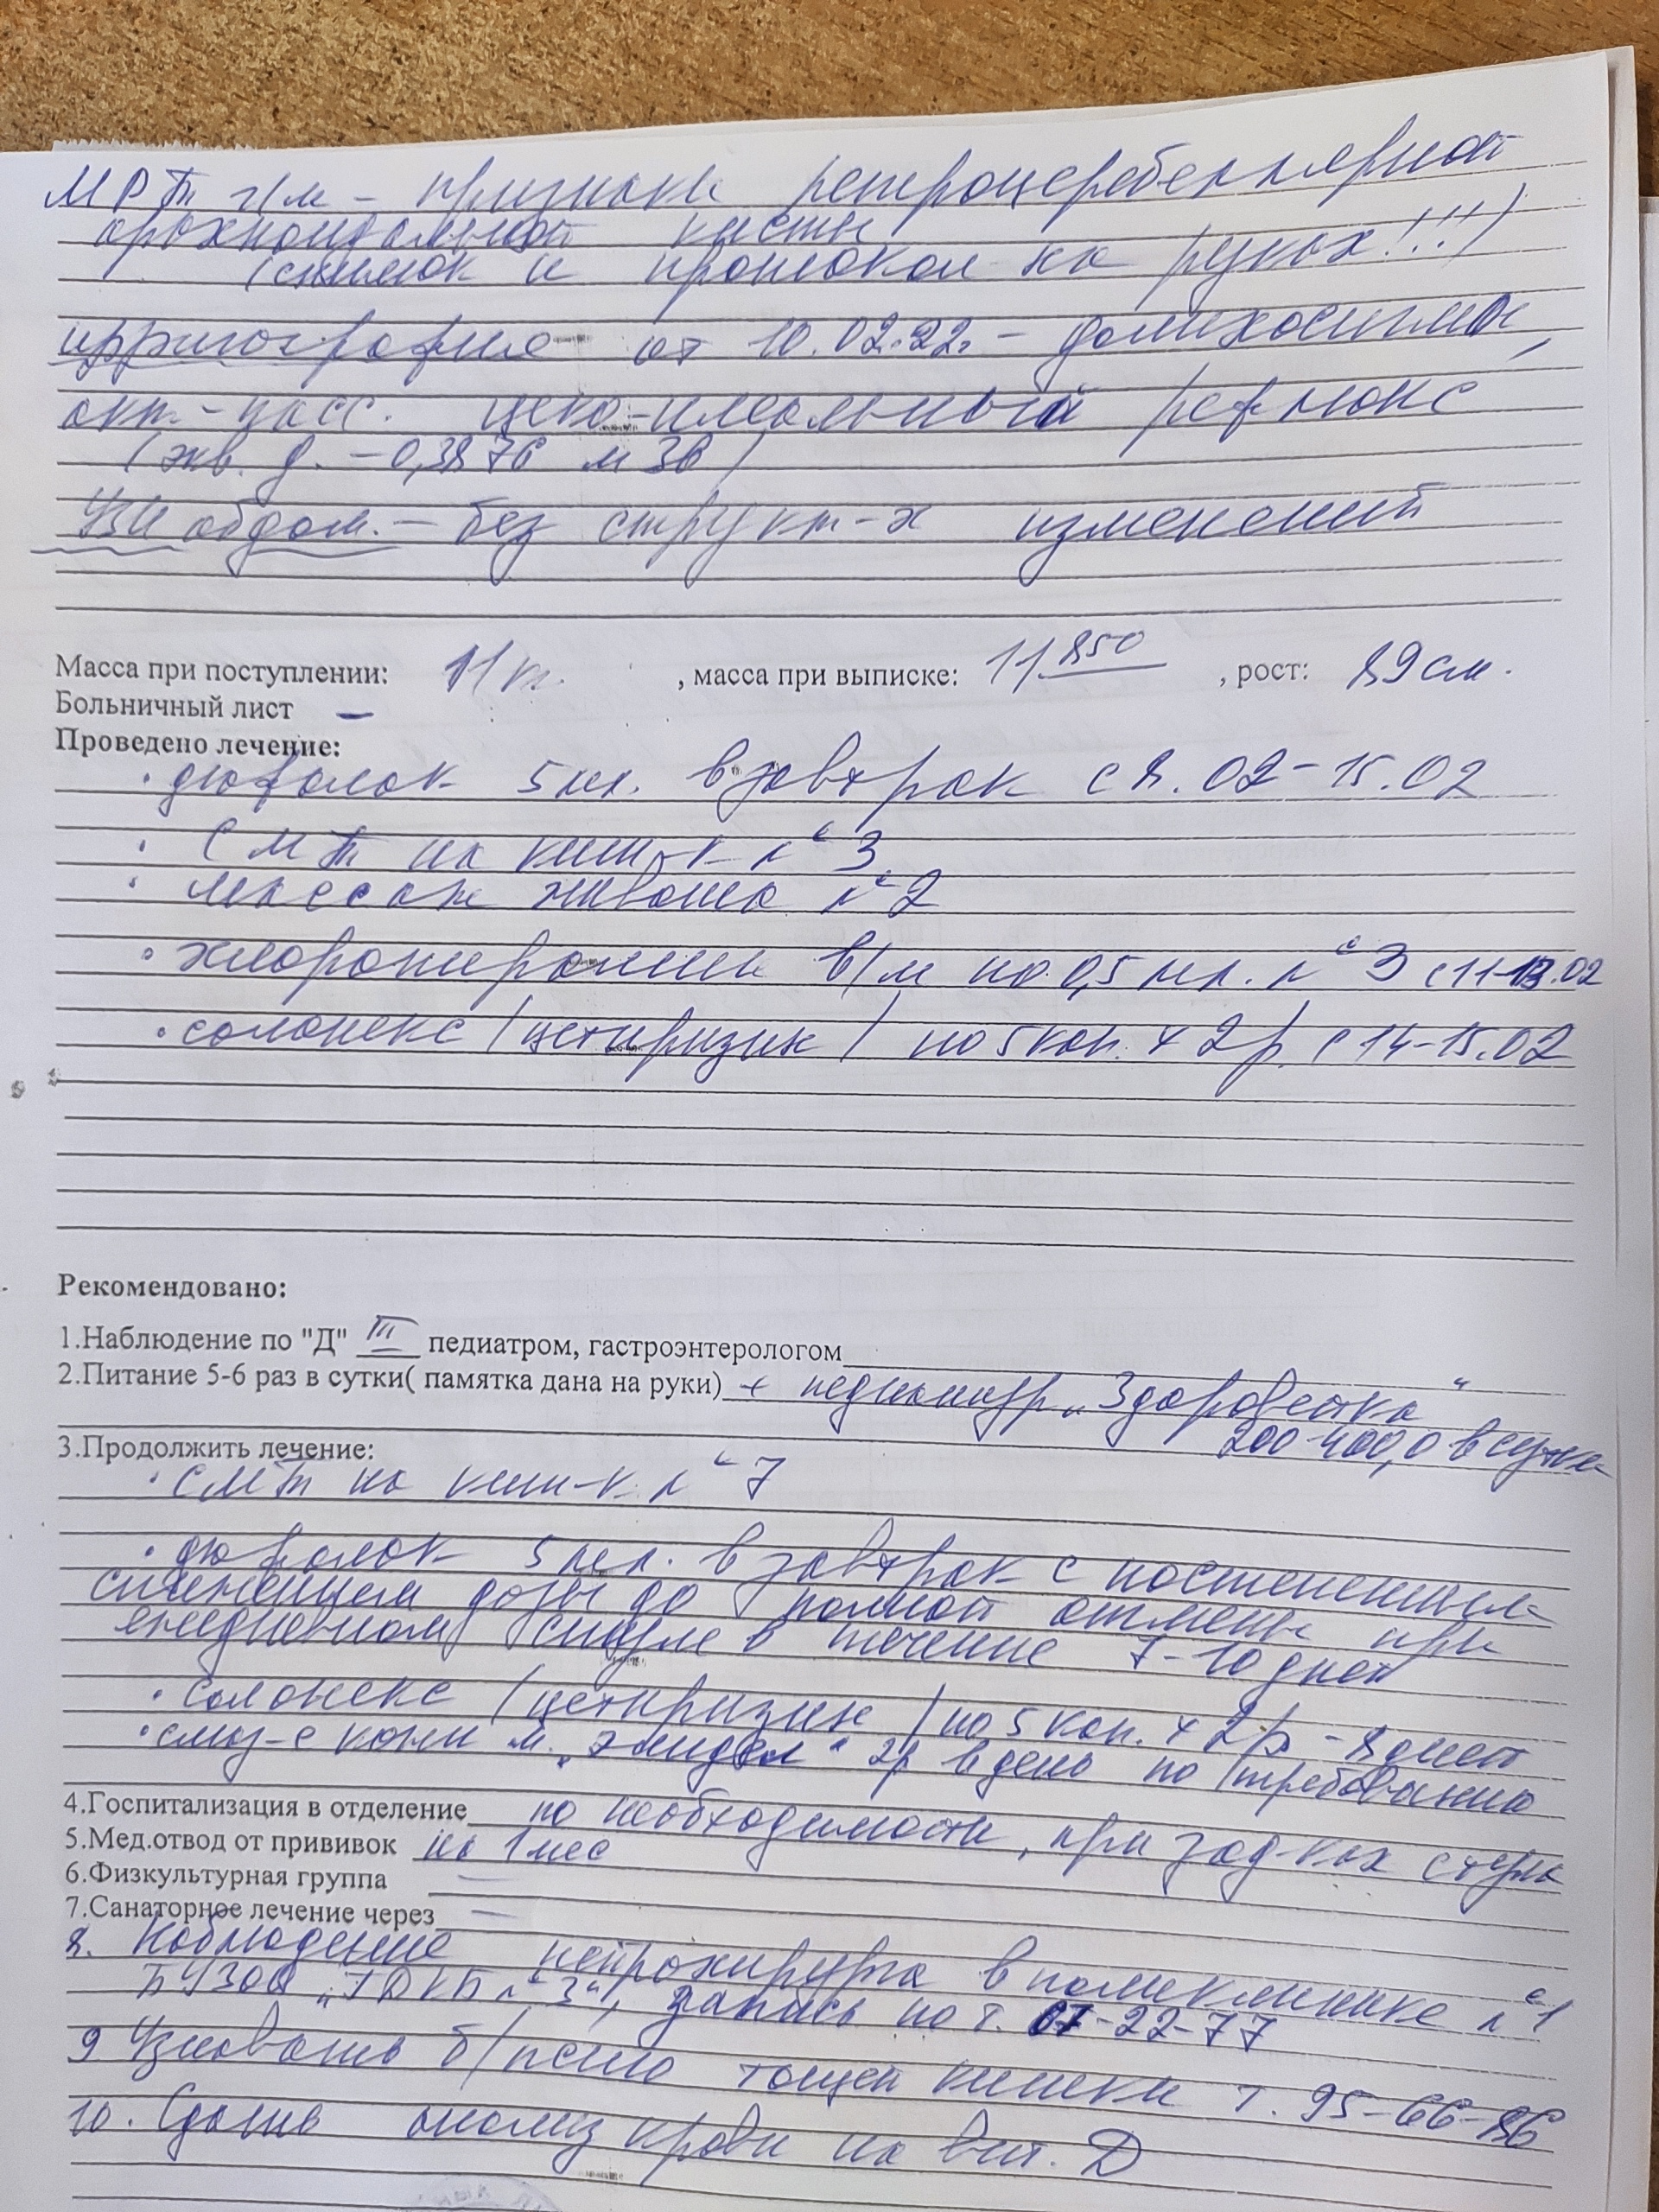 МРТ г/м – признаки ретроцеребеллярной
арахноидальной кисты
(снимок и протокол на руках!!!)
ирригография от 10.02.22. – долихосигма,
цеко-илеальный рефлюкс
(экв. д. – 0,3876 мЗв)
УЗИ абдом. – без структ-х изменений
Масса при поступлении: 11 кг. , масса при выписке: 11,850 , рост: 89 см.
Больничный лист –
Проведено лечение:
· дюфалак 5 мл. в завтрак с 8.02 – 15.02
· СМТ на киш-к №3
· массаж живота №2
· хлоропирамин в/м по 0,5 мл. №3 с 11-13.02
· солонекс (цетиризин) по 5 кап. х 2 р с 14-15.02
Рекомендовано:
1.Наблюдение по "Д" III педиатром, гастроэнтерологом
2.Питание 5-6 раз в сутки( памятка дана на руки) + педиашур „Здоровейка“
200-400,0 в сутки
3.Продолжить лечение:
· СМТ на киш-к. №7
· дюфалак 5 мл. в завтрак с постепенным
снижением дозы до полной отмены при
ежедневном стуле в течение 7-10 дней
· солонекс (цетиризин) по 5 кап. х 2 р – 8 дней
· смаз-е кожи м. „Эмидел“ 2р в день по требованию
4.Госпитализация в отделение по необходимости, при зад-ках стула
5.Мед.отвод от прививок на 1 мес
6.Физкультурная группа –
7.Санаторное лечение через –
8. Наблюдение нейрохирурга в поликлинике №1
БУЗОО „ГДКБ №3“, запись по т. 67-22-77
9 Узнавать б/псию тощей кишки т. 95-66-86
10. Сдать анализ крови на вит. Д